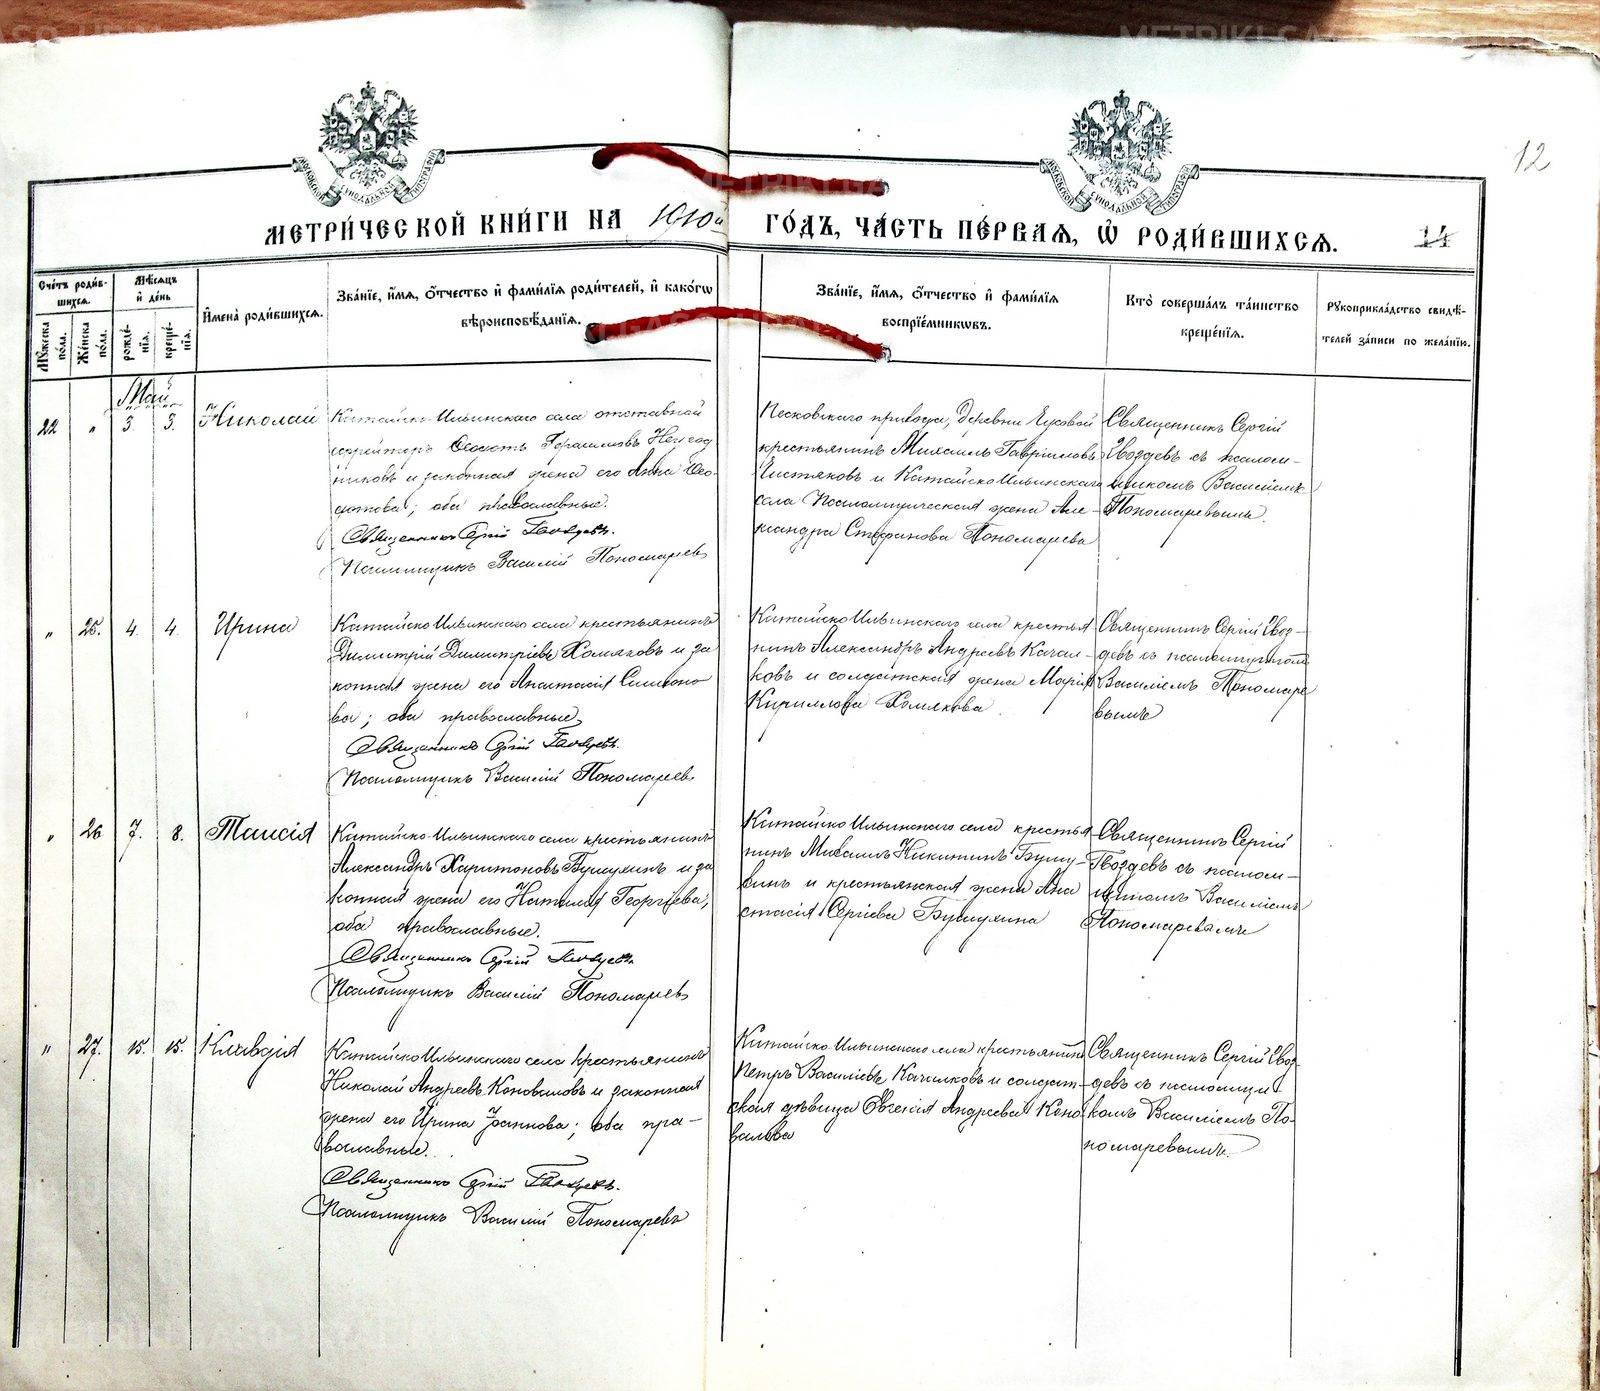 12
МЕТРИ́ЧЕСКОЙ КНИ́ГИ НА 1910й ГО́ДЪ, ЧА́СТЬ ПЕ́РВАЯ, Ѡ҆ РОДИ́ВШИХСЯ. 14
Сче́тъ роди́в-
шихся.
Мꙋ́жеска
по́ла.
Же́нска
по́ла.
Мѣ́сяцъ
и҆ де́нь
рожде́-
нїя.
креще́-
нїя.
И҆мена̀ роди́вшихся.
Зва́нїе, и҆́мя, ѻ҆́тчество и҆ фами́лїя роди́телей, и҆ како́гѡ
вѣроисповѣ́данїя.
Зва́нїе, и҆́мя, ѻ҆́тчество и҆ фами́лїя
воспрїе́мникѡвъ.
Кто̀ соверша́лъ та́инство
креще́нїя.
Рꙋкоприкла́дство свидѣ́-
телей за́писи по жела́нїю.
Май
22 " 3. 3. Николай
Китайско-Ильинскаго села отставной
ефрейторъ Ѳеодотъ Герасимовъ
и законная жена его Анна Ѳео-
дотова; оба православные.
Священникъ Сергій Гвоздевъ.
Псаломщикъ Василій Пономарев
Песковскаго прихода, деревни
крестьянинъ Михаилъ Гавриловъ
Чистяковъ и Китайско-Ильинскаго
села Псаломщическая жена Але-
ксандра Стефанова Пономарева
Священникъ Сергій
Гвоздевъ съ псалом-
щикомъ Василіемъ
Пономаревымъ.
" 25. 4. 4. Ирина
Китайско-Ильинскаго села крестьянинъ
Димитрій Димитріевъ Хомяковъ и за
конная жена его Анастасія Симеоно
ва; оба православные.
Священникъ Сергій Гвоздевъ.
Псаломщикъ Василій Пономарев
Китайско-Ильинскаго села крестья
нинъ Александръ Андреевъ Качал-
ковъ и солдатская жена Марія
Кириллова Хомякова
Священникъ Сергій Гвоз-
девъ съ псаломщикомъ
Василіемъ Пономаре
вымъ
" 26 7. 8. Таисія
Китайско-Ильинскаго села крестьянинъ
Александръ Харитоновъ Бушухинъ и за
конная жена его Наталія Георгіева;
оба православные.
Священникъ Сергій Гвоздевъ.
Псаломщикъ Василій Пономарев
Китайско-Ильинскаго села крестья
нинъ Михаилъ Никитинъ
и крестьянская жена Ана
стасія Сергіева Бушухина
Священникъ Сергій
Гвоздевъ съ псалом-
щикомъ Василіемъ
Пономаревымъ
" 27. 15. 15. Клавдія
Китайско-Ильинскаго села крестьянинъ
Николай Андреевъ Коноваловъ и законная
жена его Ирина Іоаннова; оба пра-
вославные.
Священникъ Сергій Гвоздевъ.
Псаломщикъ Василій Пономаревъ
Китайско-Ильинскаго села крестьянинъ
Петръ Василіевъ Качалковъ и солдат-
ская дѣвица Евгенія Андреева Коно
валова
Священникъ Сергій Гвоз-
девъ съ псаломщи
комъ Василіемъ По-
номаревымъ.